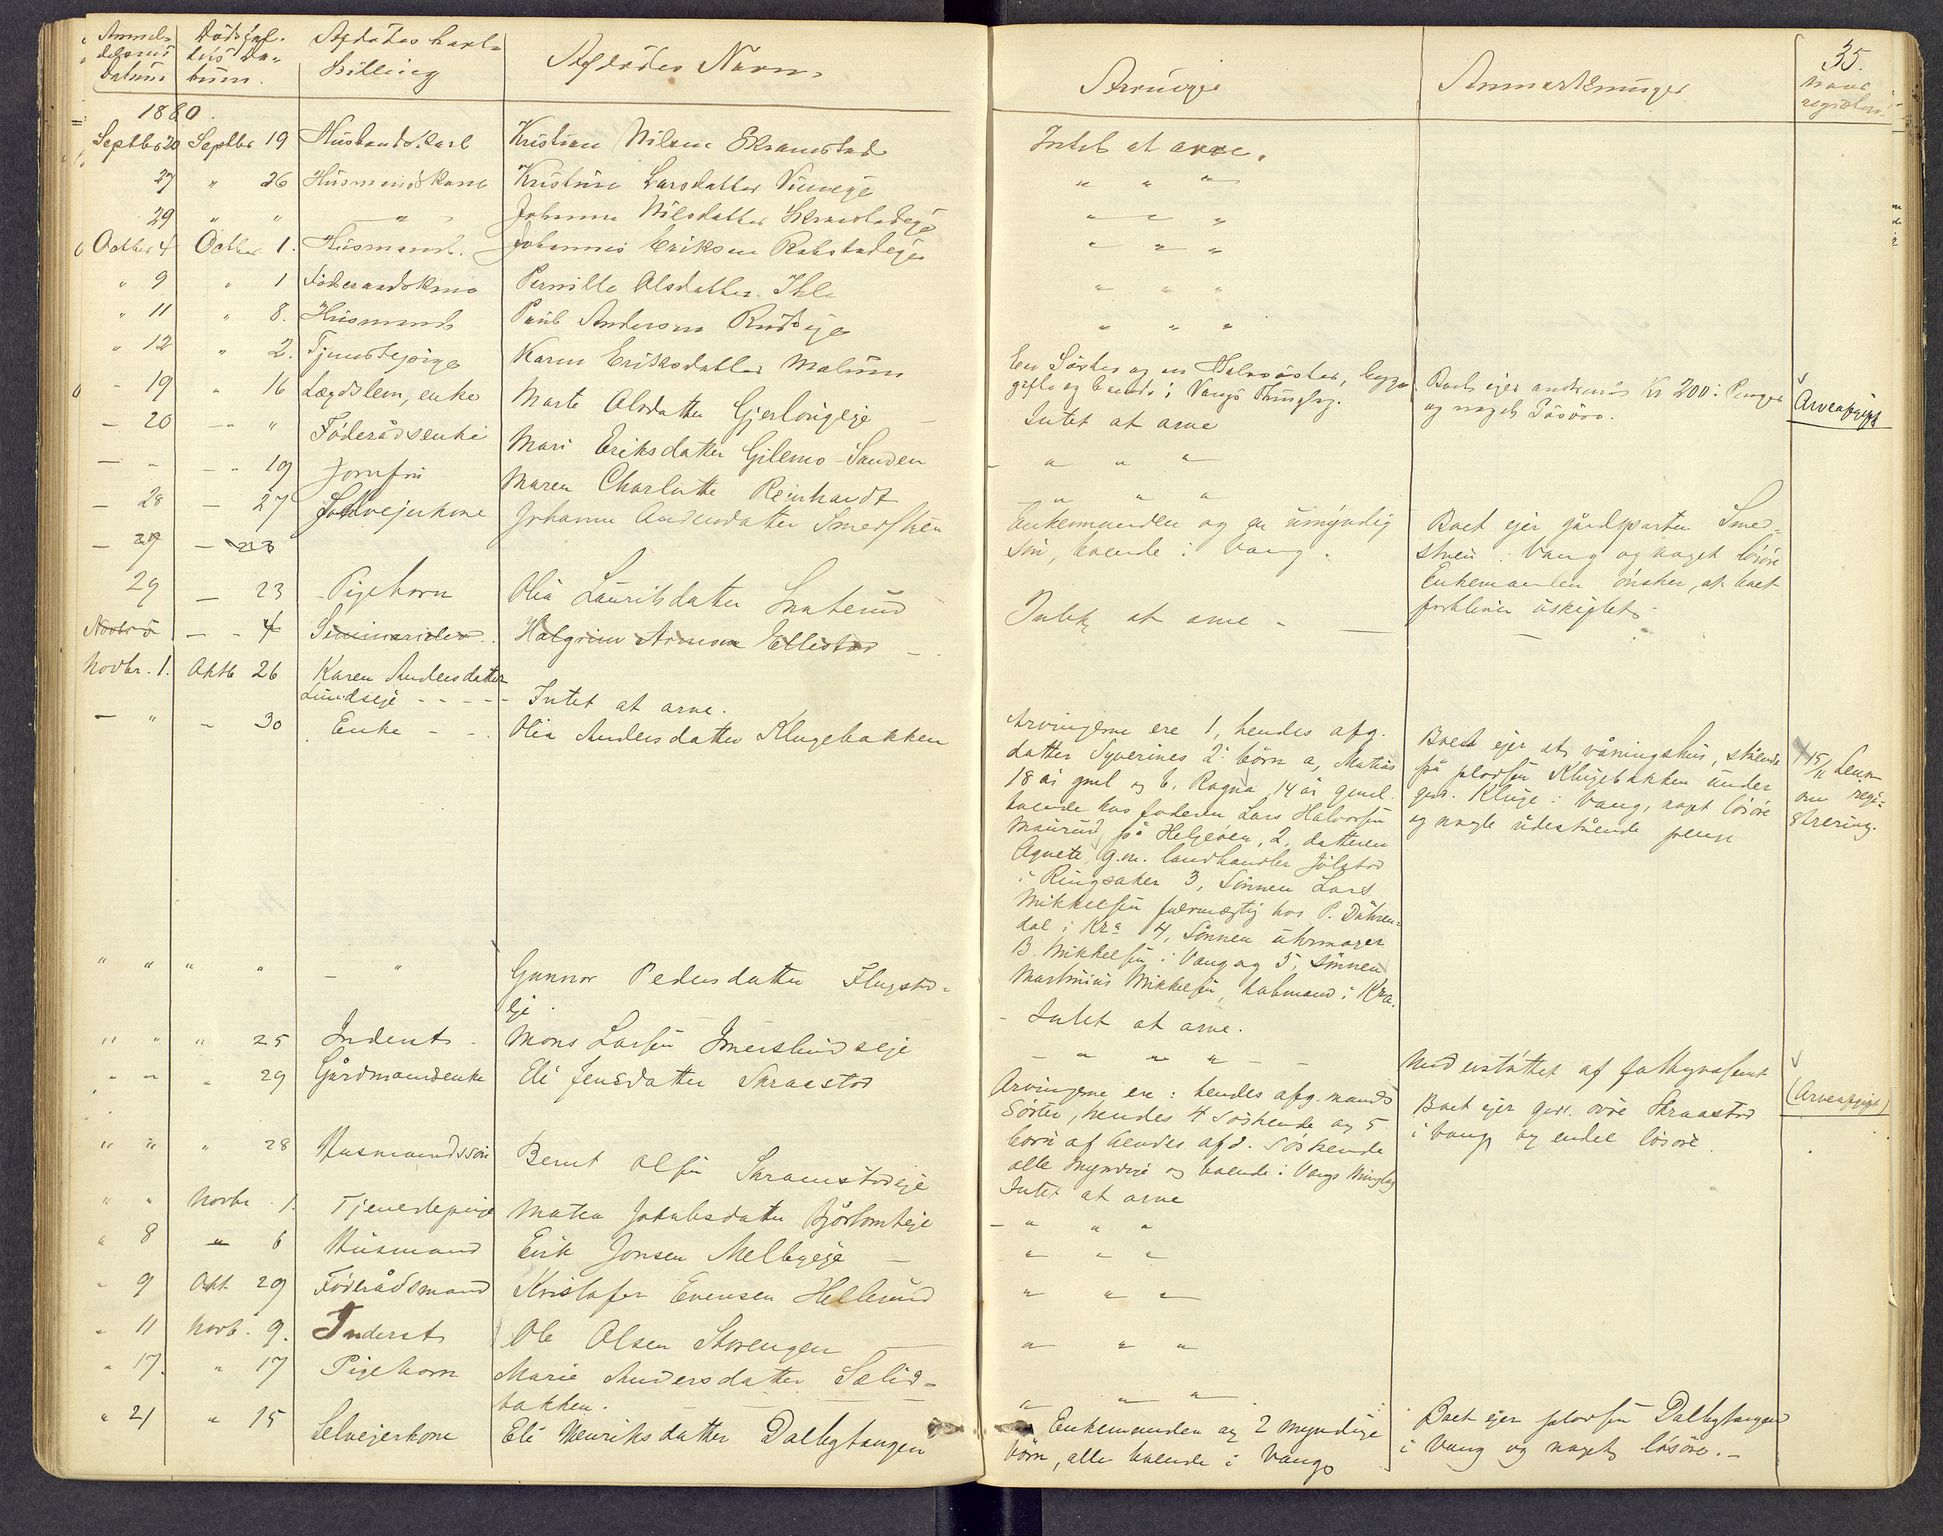 35.
Anmel- Dødsfal- Afdødes
delsens lets Da-
Datum tum. Stilling Afdødes Navn. Arvinge Anmærkninger
1880.
Septbr 20 Septbr 19 Kristian Nilsen Intet at arve.
27 " 26 Husmandskone Kristine Larsdatter " " "
29 " " " Johanne Nilsdatter " "
Octbr 4 Octbr 1. Husmand. Johannes Eriksen " " "
" 9 " 1 Føderaadskone Pernille Olsdatter Ihle " " "
" 11 " 8. Husmand Paul Andersen " " "
" 12 " 2. Tjenestepige Karen Eriksdatter Melum
En Søster og en Halvsøster, begge
gifte og boende i Vangs Thinglag. Boet ejer Kr 200: Penger
og noget Løsøre. Arveafgift
- 19 " 16 Lægdslem, enke Marte Olsdatter Gjerlougeje - Intet at arve
- 20 - " Føderådsenke Mari Eriksdatter Gilemo-Sanden - " " "
- " - " 19 Jomfru Maren Charlotte Reinhardt - " " "
- 28 - 27 Selvejerkone Johanne Andersdatter Smedstuen
Enkemanden og en umyndig
søn, boende i Vang. Boet ejer gårdparten Smed-
stuen i Vang og noget løsøre
Enkemanden ønsker, at boet
forbliver uskiftet -
- 29 - 23
29 - 23 Pigebarn Olia Lauritsdatter Snaterud Intet at arve -
Novbr 5 - - 4 Seminarielev. Halgrim Arnesen Ellestad
Novbr. 1. Oktb 26 Karen Andersdatter
Lundseje - - - - - Intet at arve.
- " - 30 Enke - - Olia Andersdatter Klugebakken
Arvingerne ere 1, hendes afg.
datter Syverines 2 børn a, Matias
18 år gml og b, Ragna 14 år gmel.
boende hos faderen Lars Halvorsen
Maurud på Helgøen, 2, datteren
Agnete, g.m. landhandler Jølstad
i Ringsaker 3, Sønnen Lars
Mikkelsen fuldmægtig hos P. Dühren-
dal i Kra 4, Sønnen uhrmager
B. Mikkelsen i Vang og 5, sønnen
Martinius Mikkelsen, i Kra.
Boet ejer et våningshus, stående
på pladsen Klugebakken under
grd. Kluge i Vang, noget løsøre
og nogle udestående penge
15/11
om regi-
strering.
" " " " - " Gunnor Pedersdatter Flugstad-
eje. - Intet at arve.
" " " 25 Inderst - Mons Larsen Imerslundseje - " " " - - Understøttet af fattigvæsenet
" " " 29 Gårdmandsenke Eli Jensdatter Skraastad
Arvingerne ere: hendes afg. mands
Søster, hendes 4 søskende og 5
børn af hendes afd. søskende
alle myndige og boende i Vangs thinglag
Boet ejer grd. øvre Skraastad
i Vang og endel løsøre.
(Arveafgift)
" " " 28 Husmandssøn Bernt Olsen Skramstadeje Intet at arve
" " Novbr. 1. Tjenestepige Matea Jakobsdatter - " " "
" 8 " 6 Husmand Erik Jonsen Melbyeje - " " "
" 9 Okt. 29 Føderådsmand Kristofer Evensen Hellerud " " "
" 11 Novb. 9. Inderst Ole Olsen Storengen " " "
" 17. " 17 Pigebarn Marie Andersdatter
bakken. " " "
" 21 " 15 Selvejerkone Eli Henriksdatter Dalbytangen
Enkemanden og 2 myndige
børn, alle boende i Vang
Boet ejer pladsen Dalbytangen
i Vang og noget løsøre. -